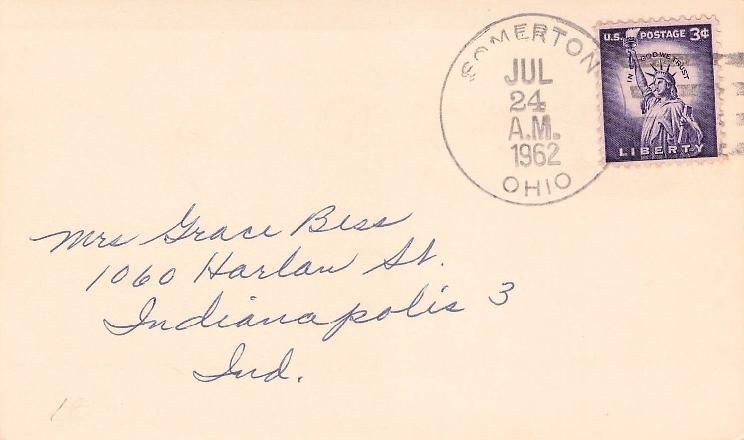 SOMERTON
JUL
24
A.M.
1962
OHIO
U.S. POSTAGE 3¢
IN GOD WE TRUST
LIBERTY
Mrs Grace Bess
1060 Harlan St.
Indianapolis 3
Ind.